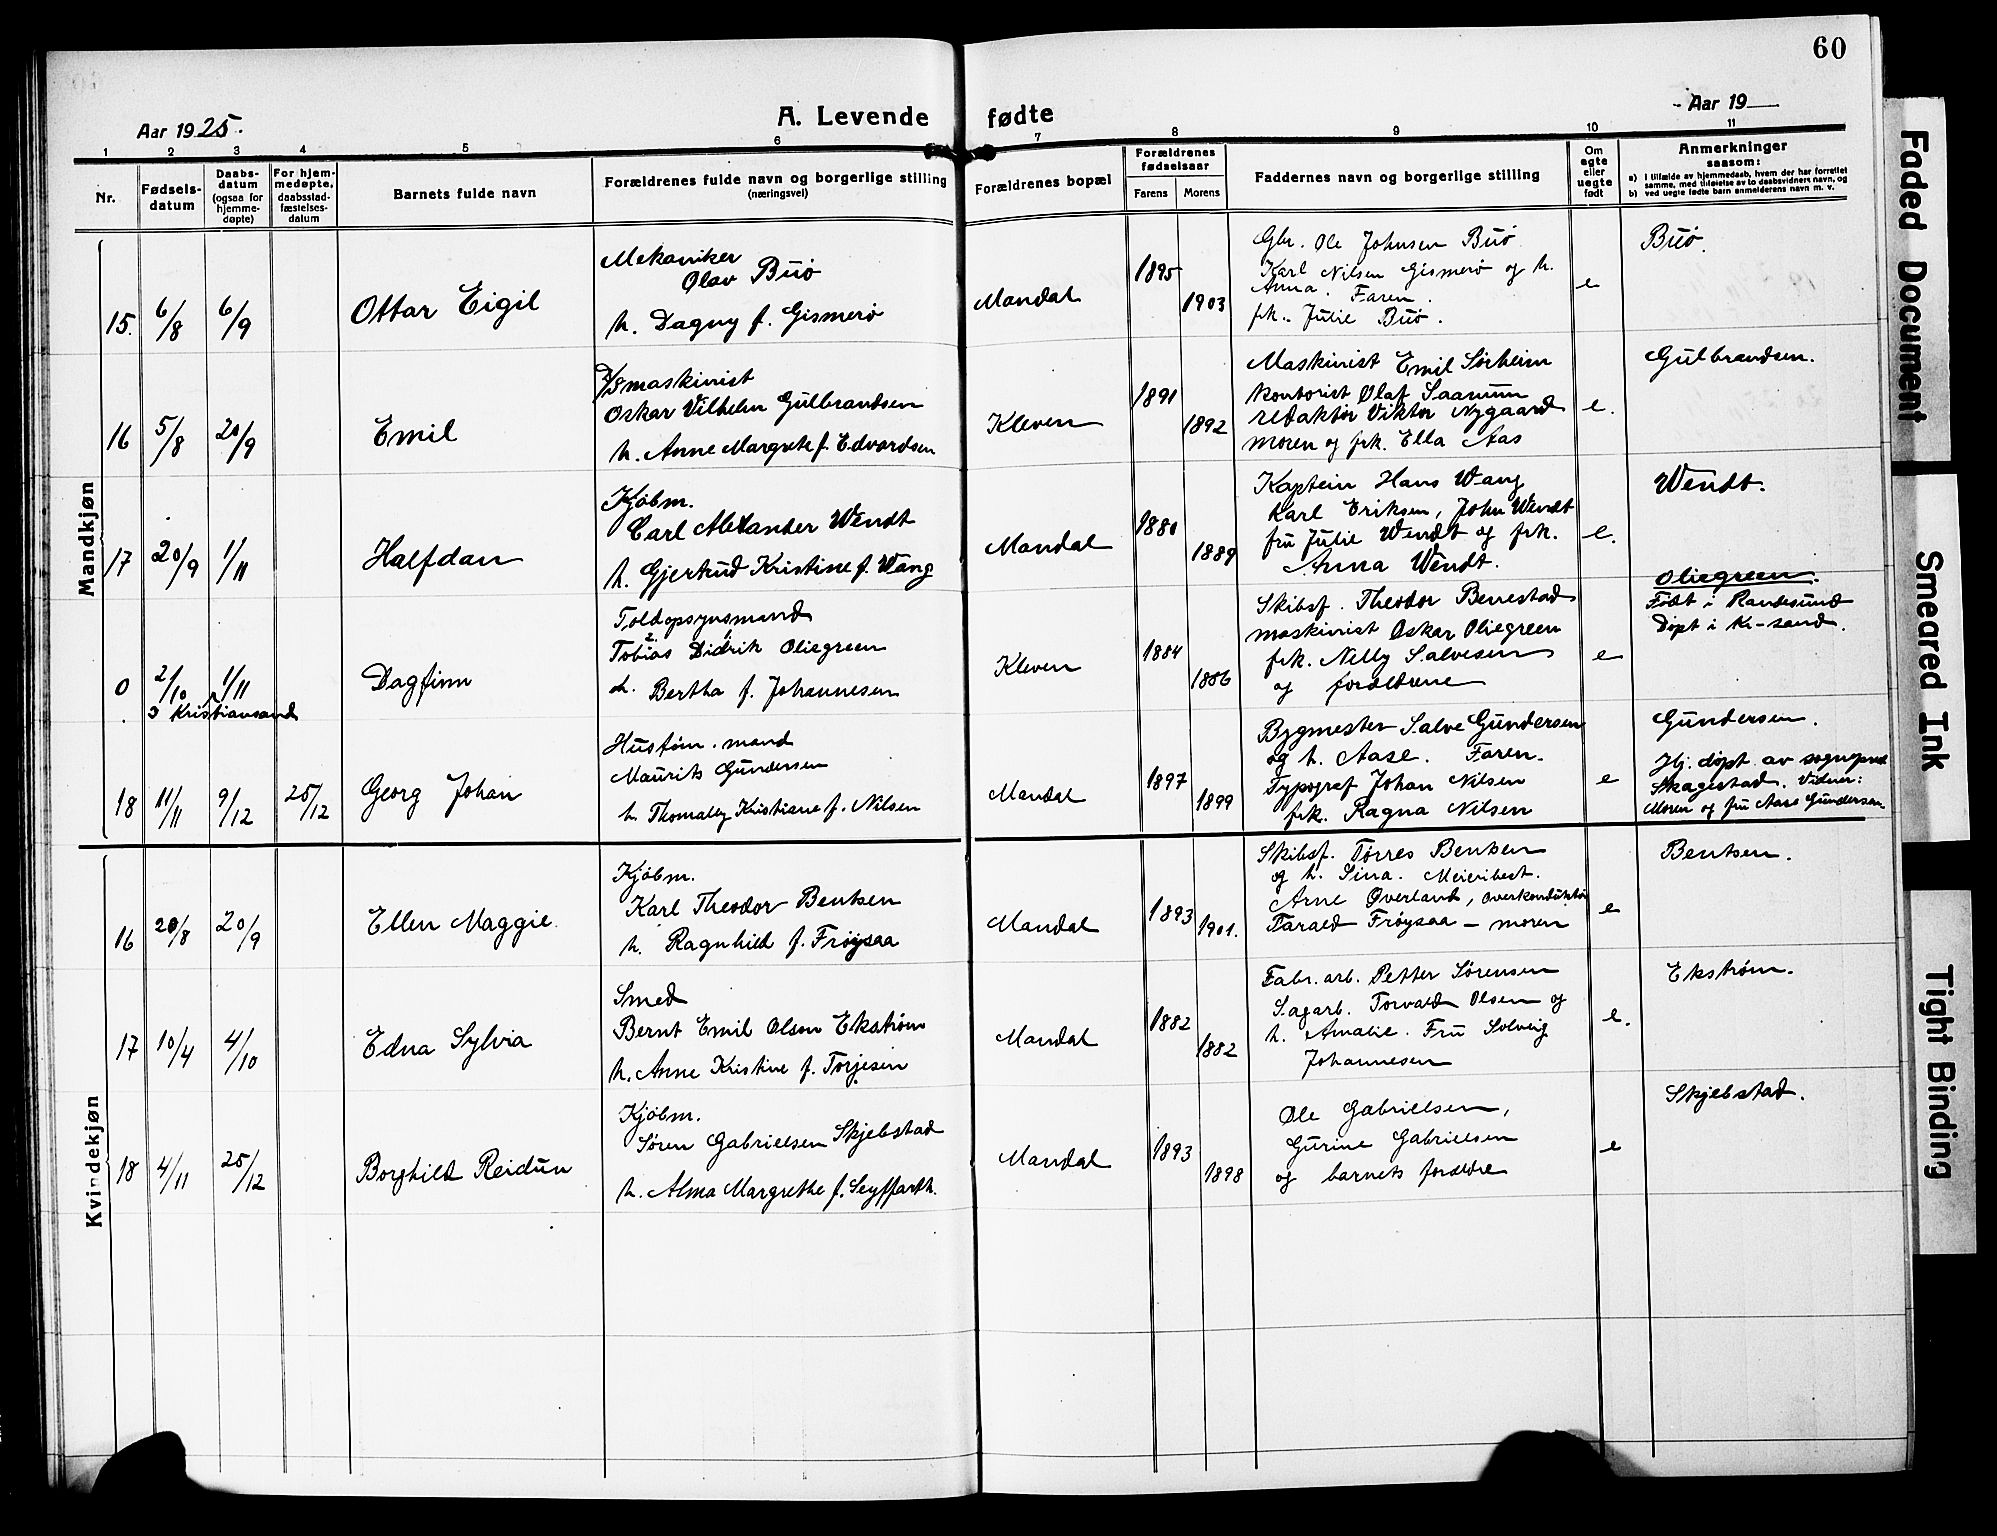 60
Aar 1925.
A. Levende fødte
Aar 19
1 2 3 4 5 6 7 8 9 10 11
Nr.
Fødsels-
datum
Daabs-
datum
(ogsaa for
hjemme-
døpte)
For hjem-
medøpte,
daabsstad-
fæstelses-
datum
Barnets fulde navn
Forældrenes fulde navn og borgerlige stilling
(næringsvei)
Forældrenes bopæl
Forældrenes
fødselsaar
Farens Morens
Faddernes navn og borgerlige stilling
Om
egte
eller
uegte
født
Anmerkninger
saasom:
a) i tilfælde av hjemmedaab, hvem der har forrettet
samme, med tilføielse av to daabsvidners navn, og
b) ved uegte fødte barn anmelderens navn m. v.
Mandkjøn
15. 6/8 6/9
Ottar Eigil
Mekaniker
Olav Buø
h. Dagny f. Gismerø
Mandal
1895
1903
Gbr. Ole Johnsen Buø
Karl Nilsen Gismerø og h.
Anna. Faren.
frk. Julie Buø.
e
Buø.
16 5/8 20/9
Emil
D/S maskinist
Oskar Vilhelm Gulbrandsen
h. Anne Margrete f. Edvardsen
Kleven
1891
1892
Maskinist Emil Sørheim
Kontorist Olaf Saanum
redaktør Viktor Nygaard
moren og frk. Ella Aas
e.
Gulbrandsen.
17 20/9 1/11
Halfdan
Kjøbm.
Carl Alexander Wendt
h. Gjertrud Kristine f. Wang
Mandal
1880
1889
Kaptein Hans Wang
Karl Eriksen, John Wendt
fru Julie Wendt og frk.
Anna Wendt.
e.
Wendt.
0 2/10 1/11
I Kristiansand
Dagfinn
Toldopsynsmand
2. 1.
Tobias Didrik Oliegreen
h. Bertha f. Johannesen
Kleven
1884
1886
Skibsf. Theodor Benestad
maskinist Oskar Oliegreen
frk. Nelly Salvesen
og forældrene
e
Oliegreen.
Født i Randesund
Døpt i Kr-sand.
18 11/11 9/12 25/12
Georg Johan
Hustøm. mand
Maurits Gundersen
h. Thomaley Kristiane f. Nilsen
Mandal
1897
1899
Bygmester Salve Gundersen
og h. Aase. Faren.
Typograf Johan Nilsen
frk. Ragna Nilsen
e
Gundersen.
Hj. døpt av sogneprest
Skagestad. Vidner:
Moren og fru Aase Gundersen.
Kvindekjøn
16 20/8 20/9
Ellen Maggie.
Kjøbm.
Karl Theodor Bentsen
h. Ragnhild f. Frøysaa
Mandal
1893
1901.
Skibsf. Tørres Bentsen
og h. Sina. Meieribest.
Arne Øverland, overkonduktør
Tarald Frøysaa - moren
e
Bentsen.
17 10/4 4/10
Edna Sylvia
Smed
Bernt Emil Olsen Ekstrøm
h. Anne Kristine f. Torjesen
Mandal
1882
1882
Fabr. arb. Petter Sørensen
Sagarb. Torvald Olsen og
h. Amalie. Fru Solveig
Johannesen
e.
Ekstrøm.
18 4/11 25/12
Borghild Reidun
Kjøbm.
Søren Gabrielsen Skjebstad
h. Alma Margrethe f. Seyffarth.
Mandal
1893
1898
Ole Gabrielsen,
Gurine Gabrielsen
og barnets forældre
e
Skjebstad.
Faded Document
Smeared Ink
Tight Binding